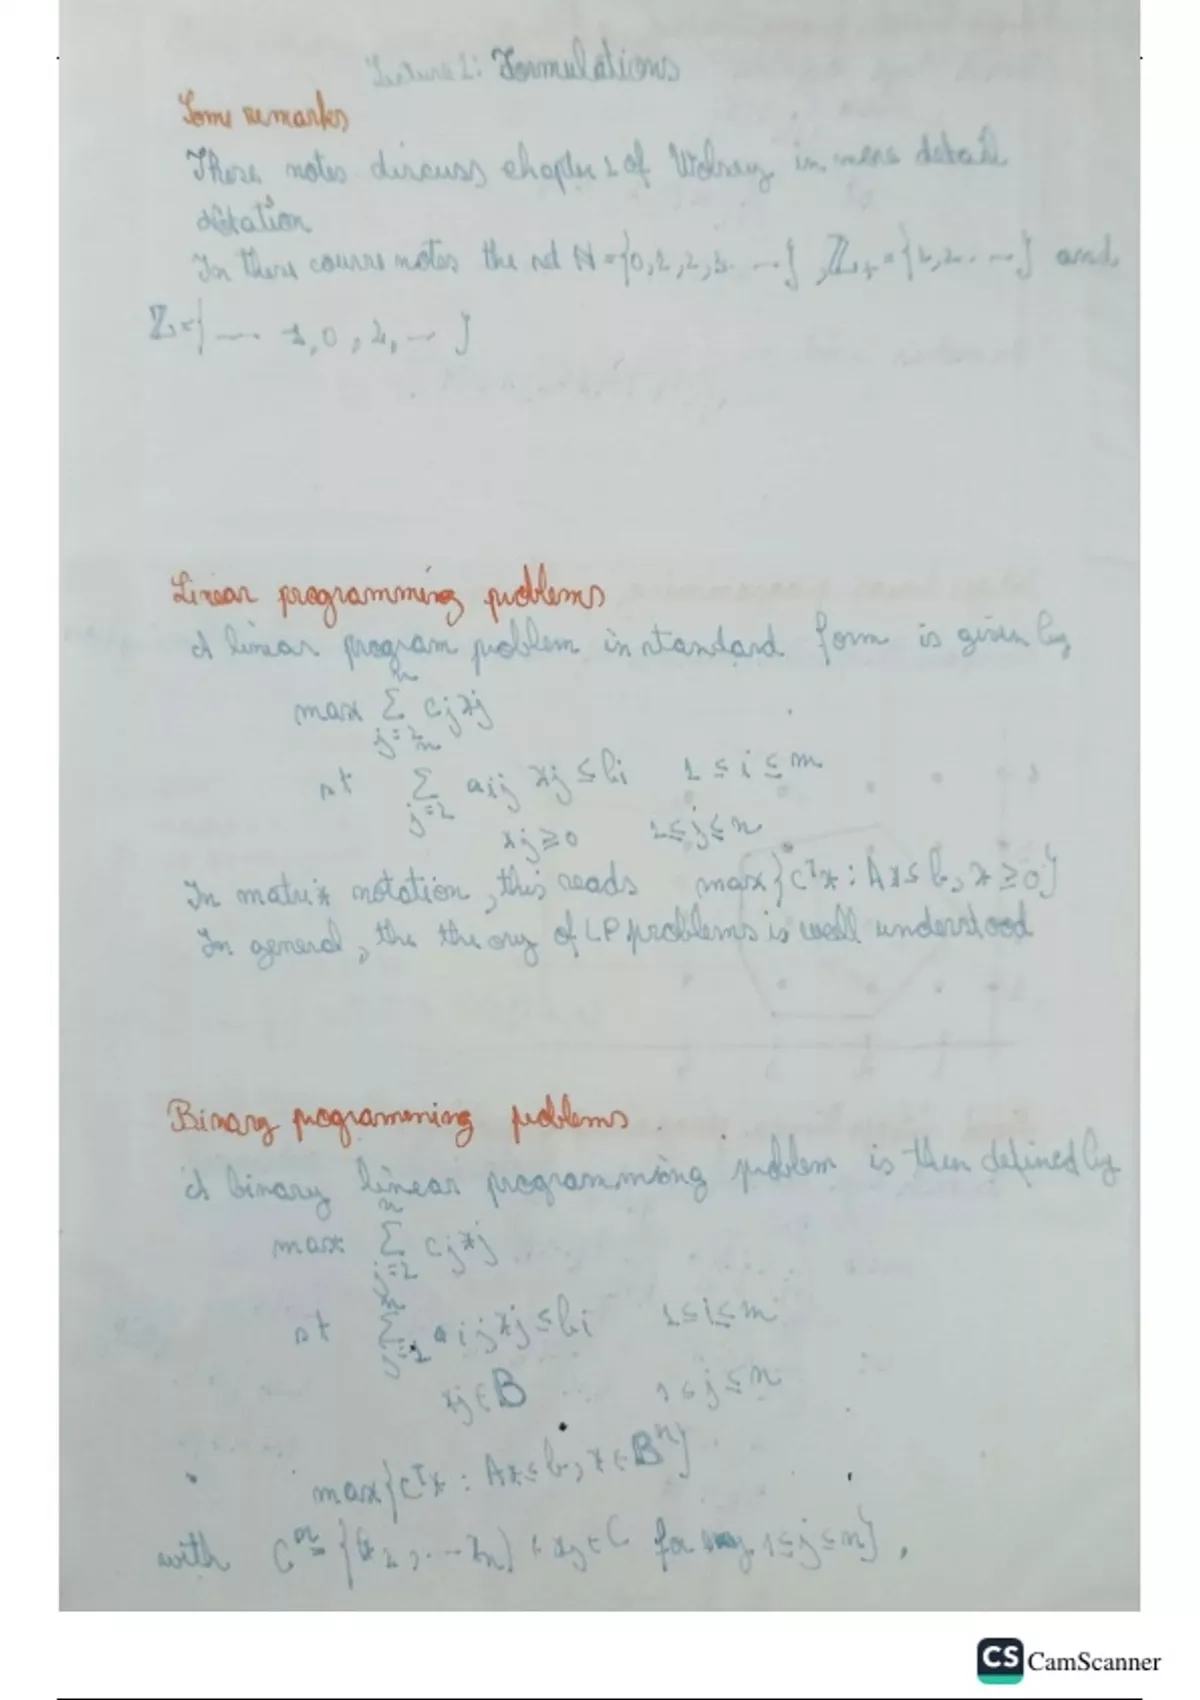 Lecture 1: Formulations
Some remarks
These notes discuss chapter 1 of Wolsey in more detail
Notation
In these course notes the set N = {0,1,2,3 ...}, Z+ = {1,2...} and
Z = {... -1, 0, 1, ...}
Linear programming problems
A linear program problem in standard form is given by
n
max Σ cj xj
j=1
n
st Σ aij xj ≤ bi 1 ≤ i ≤ m
j=1
xj ≥ 0 1 ≤ j ≤ n
In matrix notation, this reads max{c^T x : Ax ≤ b, x ≥ 0}
In general, the theory of LP problems is well understood
Binary programming problems
A binary linear programming problem is then defined by
n
max Σ cj xj
j=1
n
st Σ aij xj ≤ bi 1 ≤ i ≤ m
j=1
xj ∈ B 1 ≤ j ≤ n
max{c^T x : Ax ≤ b, x ∈ B^n}
with C^n = {(x1, ... xn) : xj ∈ C for 1 ≤ j ≤ n},
CS CamScanner